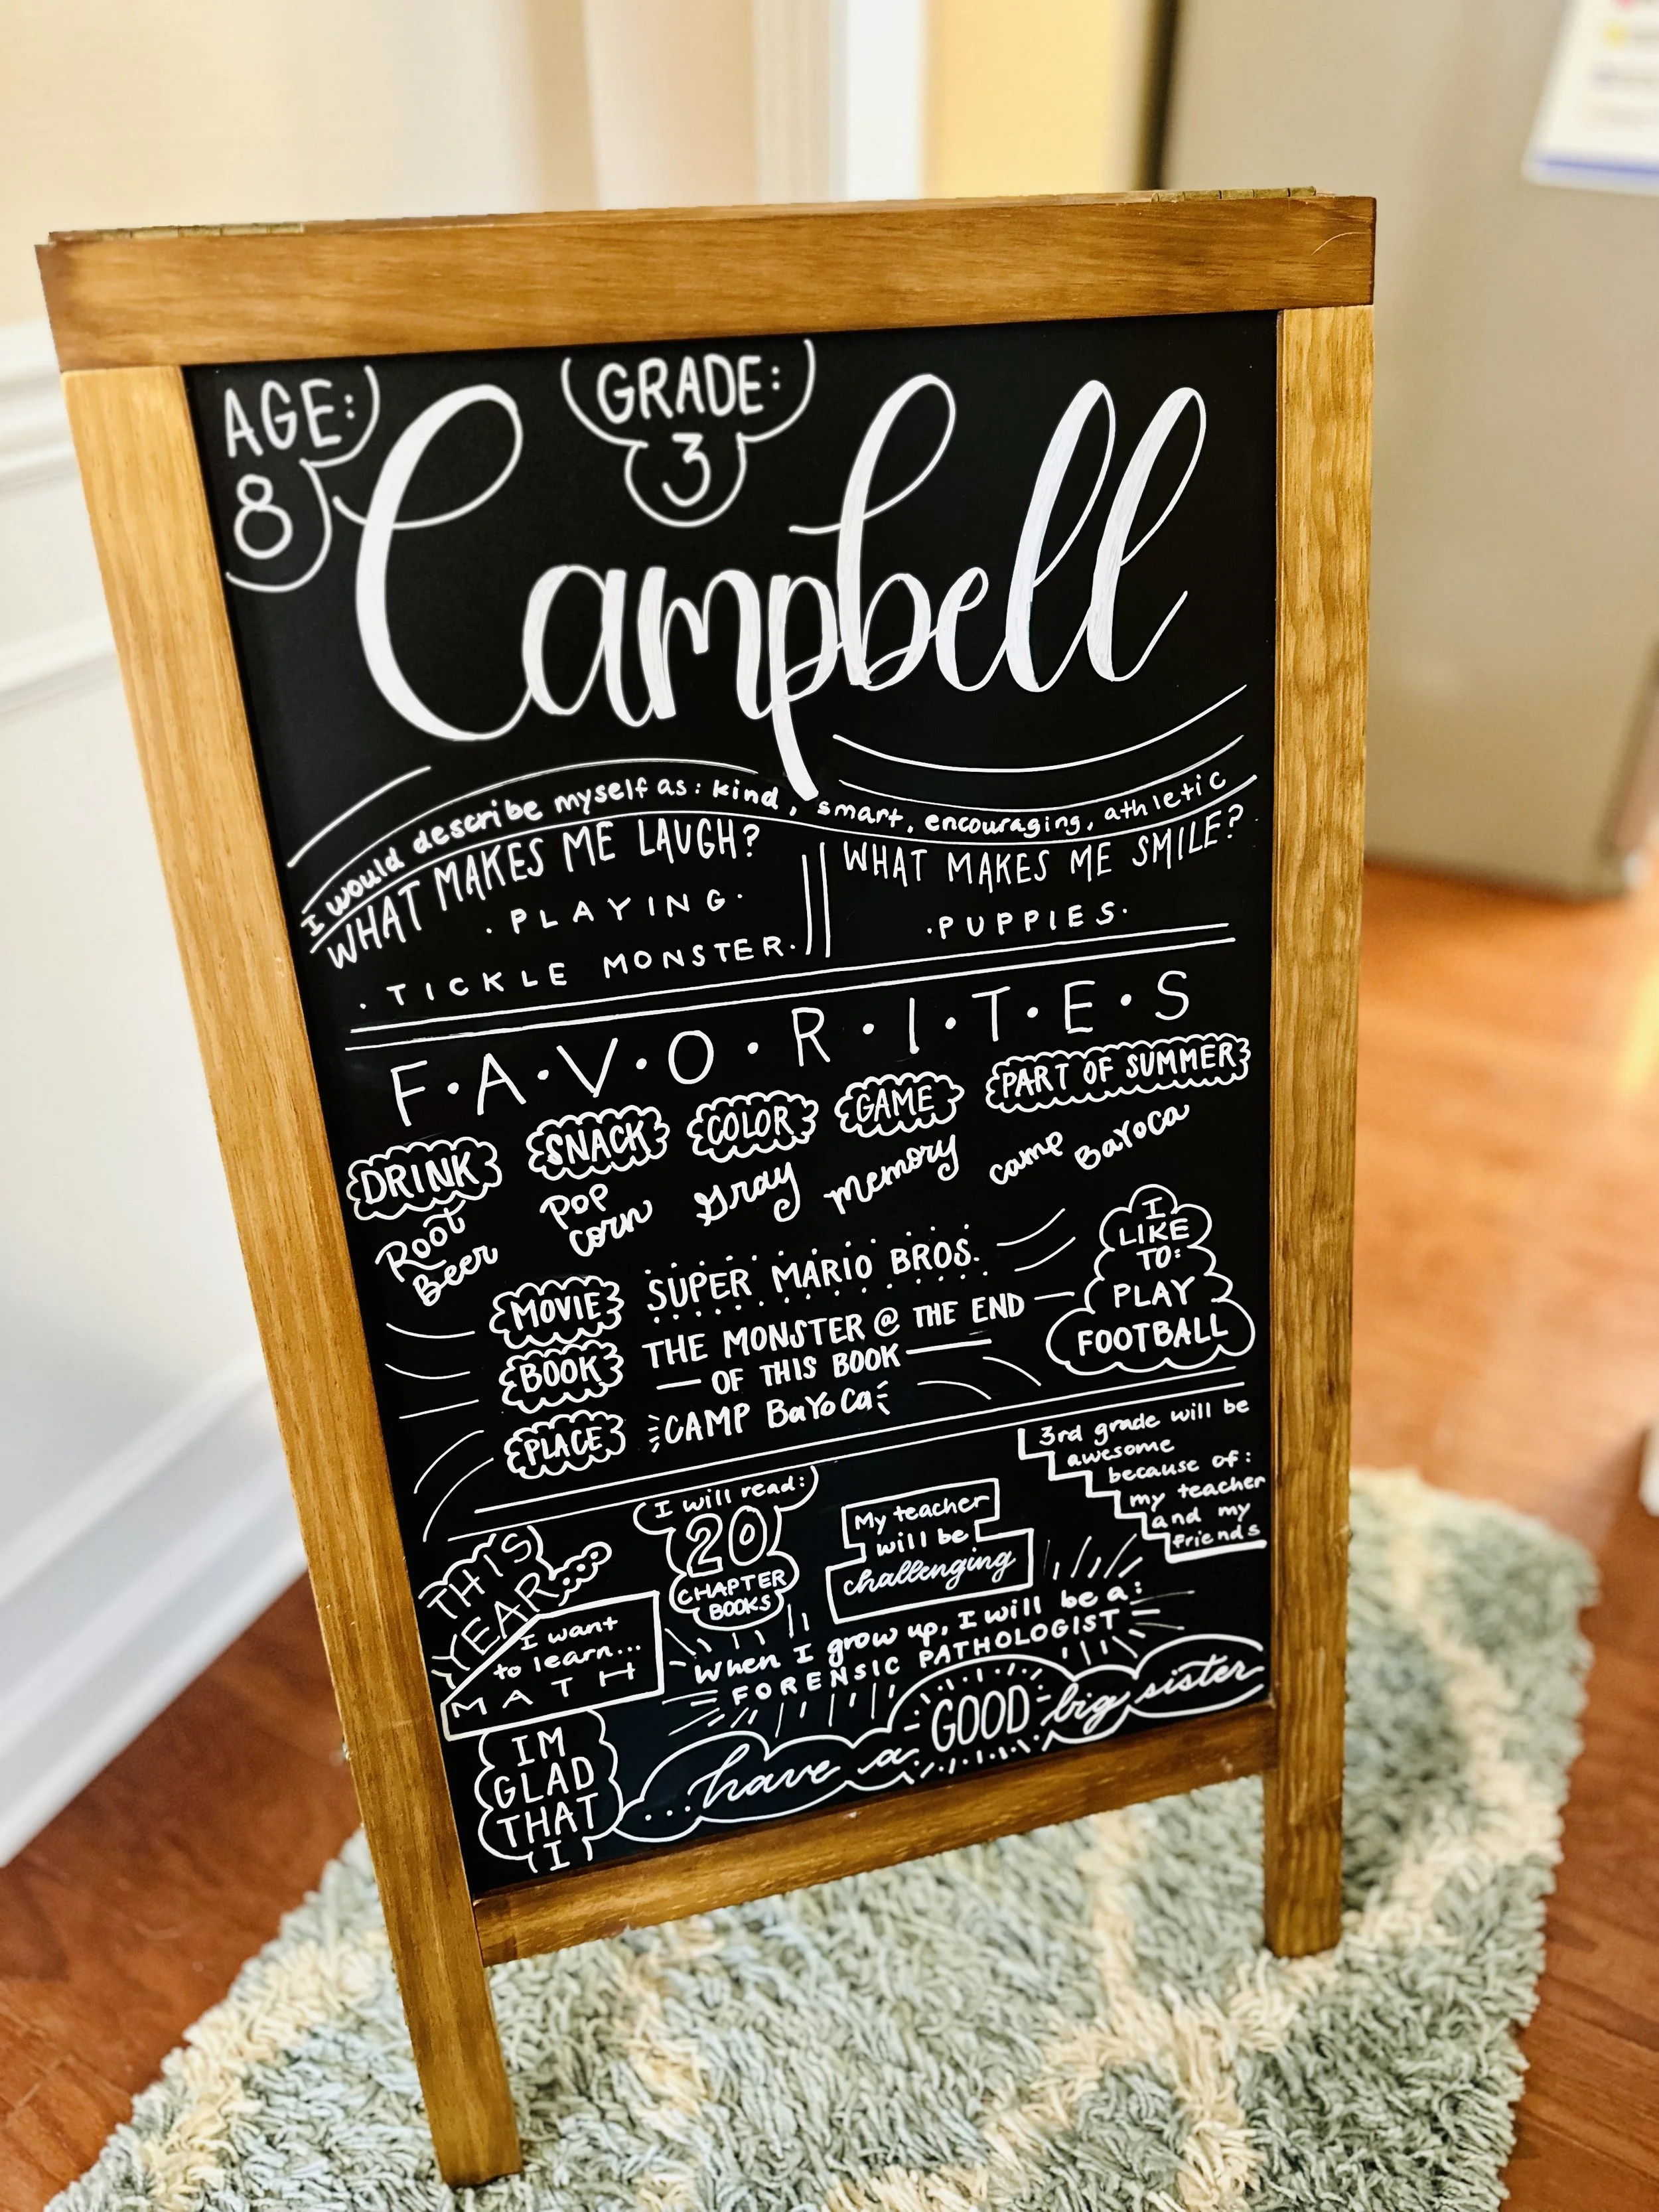 AGE:
8
GRADE:
3
Campbell
I would describe myself as: kind, smart, encouraging, athletic
WHAT MAKES ME LAUGH?
· PLAYING ·
· TICKLE MONSTER ·
WHAT MAKES ME SMILE?
· PUPPIES ·
F·A·V·O·R·I·T·E·S
DRINK
Root
Beer
SNACK
Pop
corn
COLOR
Gray
GAME
memory
PART OF SUMMER
camp BaYoCa
MOVIE
SUPER MARIO BROS.
BOOK
THE MONSTER @ THE END
— OF THIS BOOK —
PLACE
CAMP BaYoCa
I
LIKE
TO:
PLAY
FOOTBALL
THIS
YEAR...
I want
to learn...
MATH
I will read:
20
CHAPTER
BOOKS
My teacher
will be
challenging
3rd grade will be
awesome
because of:
my teacher
and my
friends
When I grow up, I will be a:
FORENSIC PATHOLOGIST
IM
GLAD
THAT
I
...have a GOOD big sister